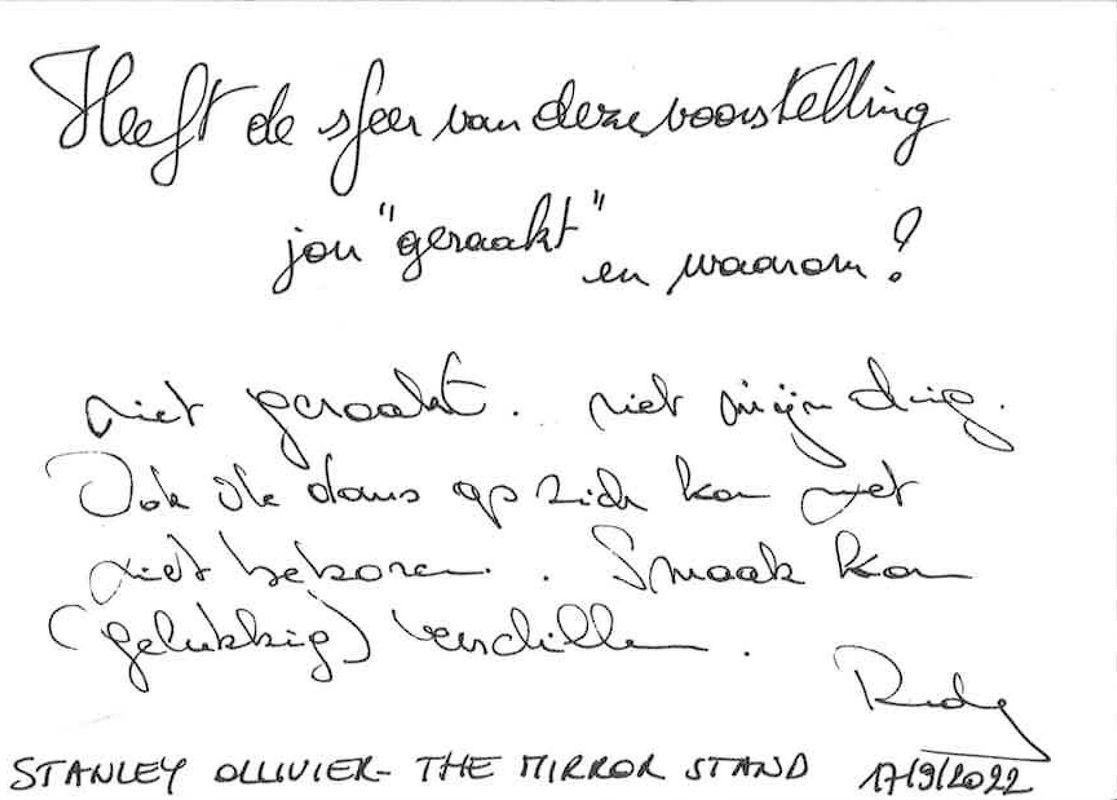 Heeft de sfeer van deze voorstelling
jou "geraakt" en waarom?
niet geraakt. niet mijn ding.
Ook de dans op zich kon met
niet bekoren. Smaak kan
(gelukkig) verschillen.
Rudy
STANLEY OLLIVIER - THE MIRROR STAND 17/9/2022